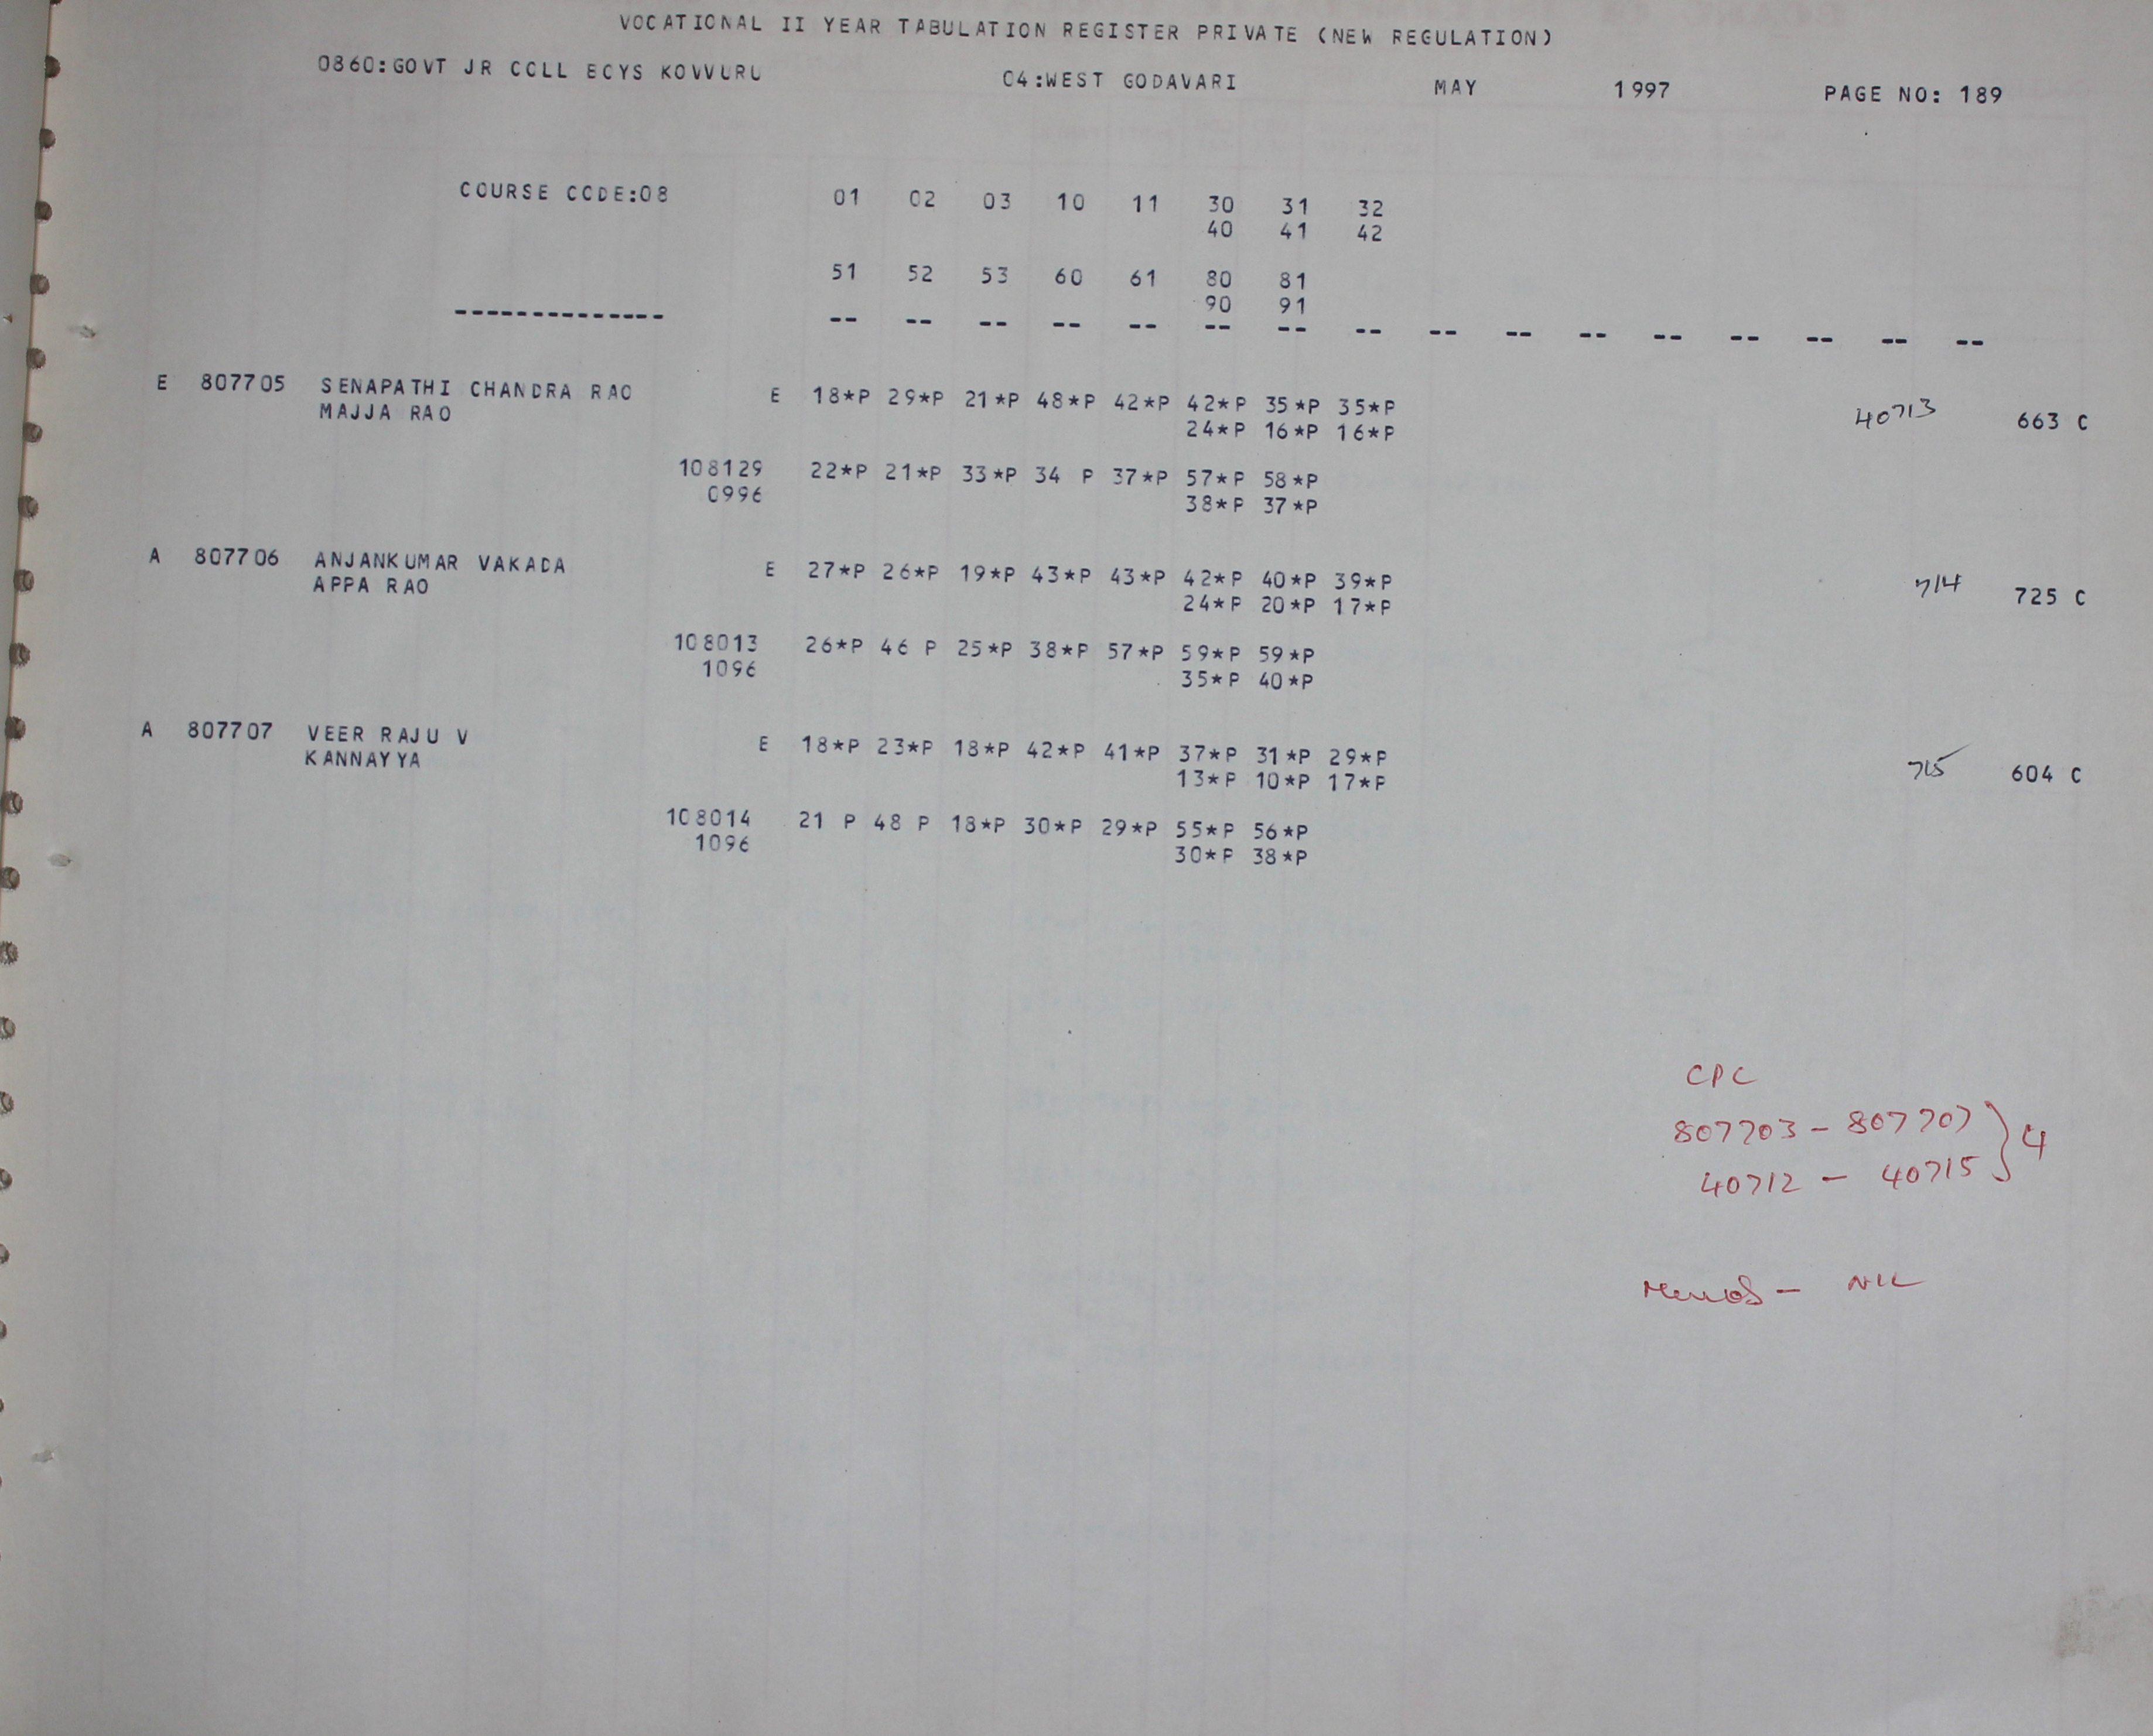 VOCATIONAL II YEAR TABULATION REGISTER PRIVATE (NEW REGULATION)
0860:GOVT JR COLL BOYS KOVVURU 04:WEST GODAVARI MAY 1997 PAGE NO: 189
COURSE CODE:08 01 02 03 10 11 30 31 32
40 41 42
51 52 53 60 61 80 81
90 91
-------------- -- -- -- -- -- -- -- -- -- -- -- -- -- -- -- --
E 807705 SENAPATHI CHANDRA RAO E 18*P 29*P 21*P 48*P 42*P 42*P 35*P 35*P 40713 663 C
MAJJA RAO 24*P 16*P 16*P
108129 22*P 21*P 33*P 34 P 37*P 57*P 58*P
0996 38*P 37*P
A 807706 ANJANKUMAR VAKADA E 27*P 26*P 19*P 43*P 43*P 42*P 40*P 39*P 714 725 C
APPA RAO 24*P 20*P 17*P
108013 26*P 46 P 25*P 38*P 57*P 59*P 59*P
1096 35*P 40*P
A 807707 VEER RAJU V E 18*P 23*P 18*P 42*P 41*P 37*P 31*P 29*P 715 604 C
KANNAYYA 13*P 10*P 17*P
108014 21 P 48 P 18*P 30*P 29*P 55*P 56*P
1096 30*P 38*P
CPC
807703 - 807707 } 4
40712 - 40715
Memos - NIL